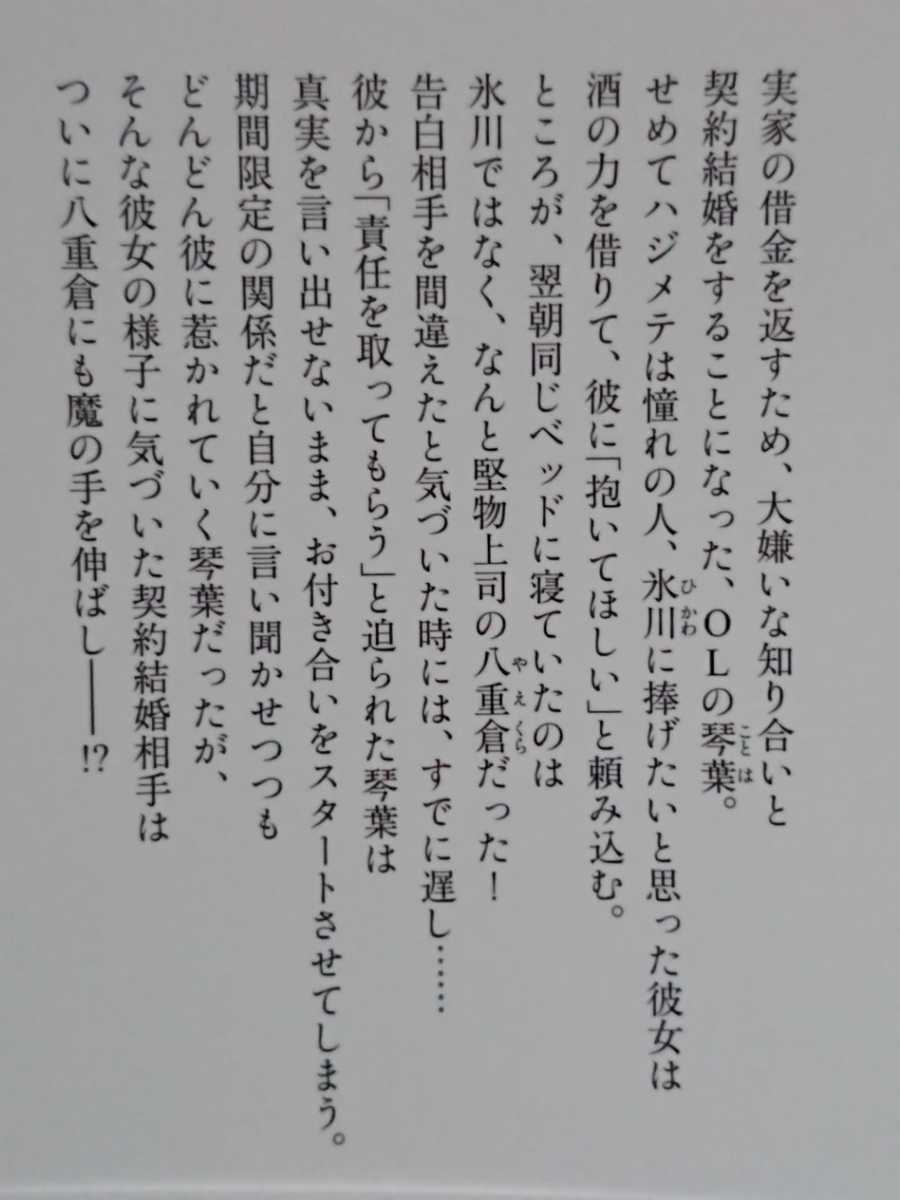 実家の借金を返すため、大嫌いな知り合いと
契約結婚をすることになった、OLの琴葉。
せめてハジメテは憧れの人、氷川に捧げたいと思った彼女は
酒の力を借りて、彼に「抱いてほしい」と頼み込む。
ところが、翌朝同じベッドに寝ていたのは
氷川ではなく、なんと堅物上司の八重倉だった！
告白相手を間違えたと気づいた時には、すでに遅し……
彼から「責任を取ってもらう」と迫られた琴葉は
真実を言い出せないまま、お付き合いをスタートさせてしまう。
期間限定の関係だと自分に言い聞かせつつも
どんどん彼に惹かれていく琴葉だったが、
そんな彼女の様子に気づいた契約結婚相手は
ついに八重倉にも魔の手を伸ばし――!?